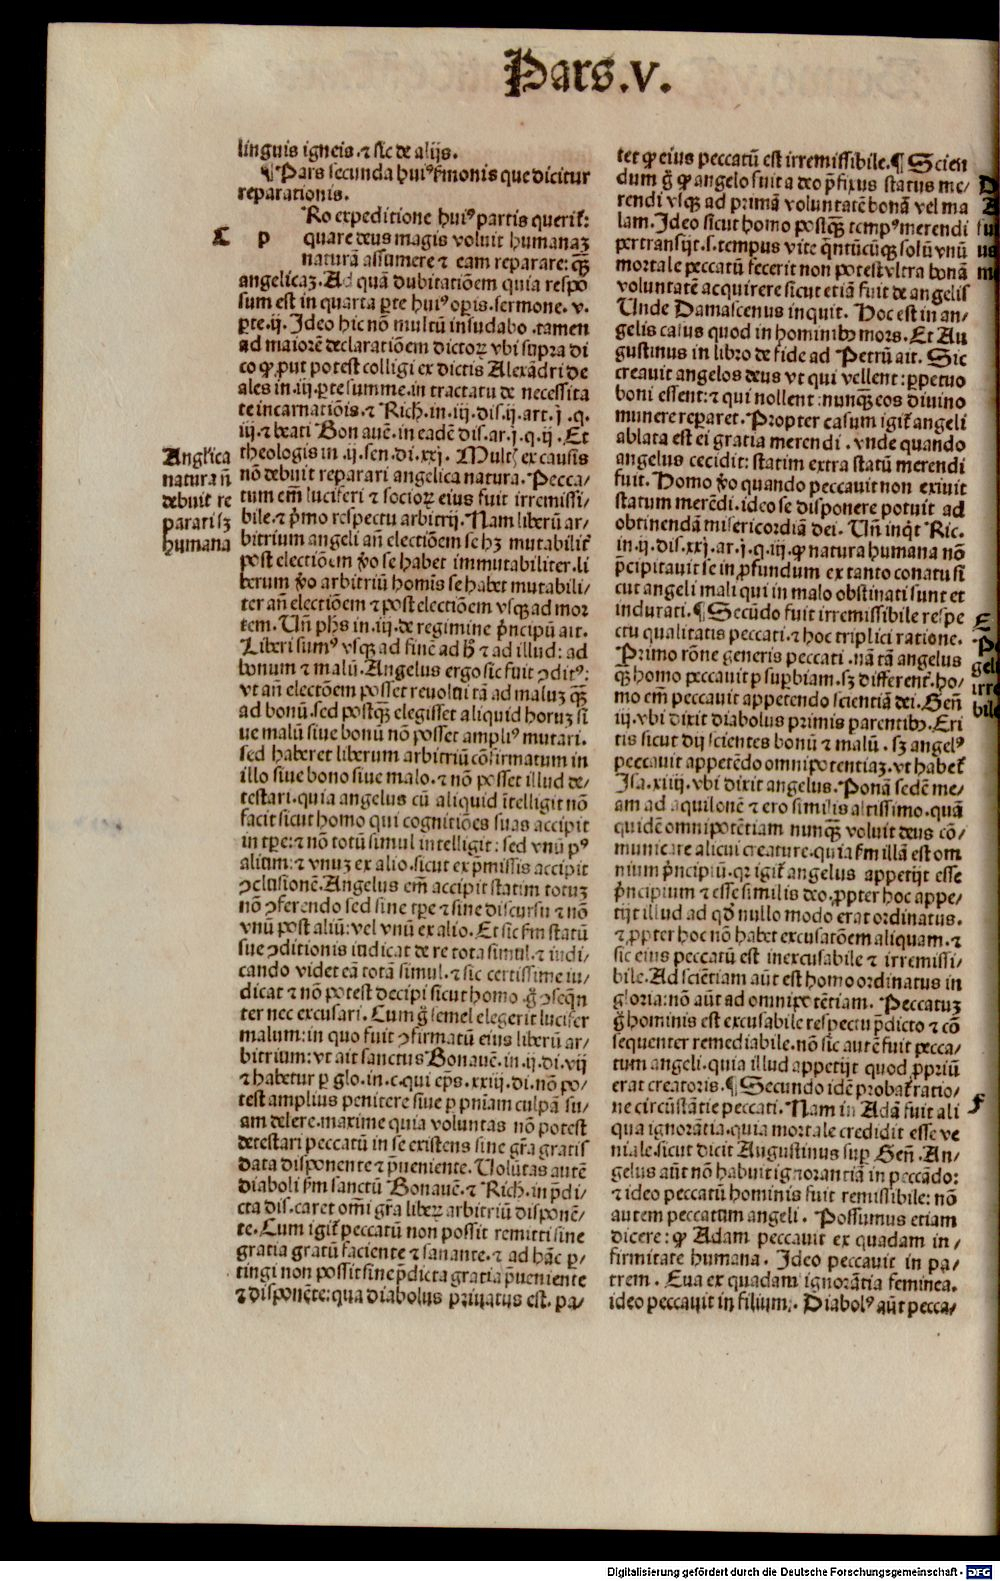 Pars.v.
linguis igneis.⁊ sic de alijs.
¶Pars secunda huiꝰ ẜmonis que dicitur
reparationis.
Ro expeditione huiꝰ partis queriť:
C p quare deus magis voluit humanaȝ
naturā assumere ⁊ eam reparare: qꝫ̄
angelicaȝ. Ad quā dubitatiōem quia respō
sum est in quarta ꝑte huiꝰ oꝑis. sermone. v.
ꝑte.ij. Ideo hic nō multū insudabo .tamen
ad maiorē declaratiōem dictoꝝ vbi supra di
co ꝙ ꝓut potest colligi ex dictis Alexādri de
ales in.iij.ꝑte summe.in tractatu de necessita
te incarnatiōis.⁊ Rich.in.iij.dis.ij.art.j.q.
iij.⁊ beati Bonauē.in eadē dis.ar.j.q.ij.Et
theologis in .ij.sen.di.xxj. Multꝭ ex causis
nō debuit reparari angelica natura. Pecca/
tum em̄ luciferi ⁊ socioꝝ eius fuit irremissi/
bile.⁊ p̄mo respectu arbitrij. Nam liberū ar/
bitrium angeli an̄ electiōem se hȝ mutabiliť
post electiōem v̄o se habet immutabiliter.li
berum v̄o arbitriū homis se habet mutabili/
ter an̄ electiōem ⁊ post electiōem vsqꝫ ad mor
tem. Un̄ ph̄s in.iij.de regimine p̄ncipū ait.
Liberi sumꝰ vsqꝫ ad finē ad h̄ ⁊ ad illud: ad
bonum ⁊ malū. Angelus ergo sic fuit ꝯditꝰ:
vt an̄ electōem posset reuolui tā ad maluȝ qꝫ̄
ad bonū.sed postqꝫ̄ elegisset aliquid horuȝ si
ue malū siue bonū nō posset ampliꝰ mutari.
sed haberet liberum arbitriū cōfirmatum in
illo siue bono siue malo.⁊ nō posset illud de/
testari.quia angelus cū aliquid ītelligit nō
facit sicut homo qui cognitiōes suas accipit
in tꝑe:⁊ nō totū simul intelligit: sed vnū pꝰ
alium:⁊ vnuȝ ex alio.sicut ex p̄missis accipit
ꝯclusionē.Angelus em̄ accipit statim totuȝ
nō ꝯferendo sed sine tꝑe ⁊ sine discursu ⁊ nō
vnū post aliū:vel vnū ex alio. Et sic ẜm statū
sue ꝯditionis iudicat de re tota simul.⁊ iudi/
cando videt eā totā simul.⁊ sic certissime iu/
dicat ⁊ nō potest decipi sicut homo .g̊ ꝯseq̄n
ter nec excusari. Cum g̊ semel elegerit lucifer
malum:in quo fuit ꝯfirmatū eius liberū ar/
bitrium:vt ait sanctus Bonauē.in.ij.di.vij
⁊ habetur ꝑ glo.in.c.qui ep̄s.xxiij.di.nō po/
test amplius penitere siue ꝑ pn̄iam culpā su/
am delere.maxime quia voluntas nō potest
detestari peccatū in se existens sine gr̄a gratis
data disponente ⁊ p̄ueniente. Volūtas autē
diaboli ẜm sanctū Bonauē.⁊ Rich.in p̄di/
cta dis.caret om̄i gr̄a libeꝝ arbitriū disponē/
te. Cum igiť peccatū non possit remitti sine
gratia gratū faciente ⁊ sanante.⁊ ad hāc ꝑ/
tingi non possit sine p̄dicta gratia p̄ueniente
⁊ disponēte:qua diabolus priuatus est. pa/
Angelica
natura n̄
debuit re
parari sȝ
humana
tet ꝙ eius peccatū est irremissibile.¶ Scien
dum g̊ ꝙ angelo fuit a deo p̄fixus status me/
rendi vsqꝫ ad primā voluntatē bonā vel ma
lam. Ideo sicut homo postqꝫ̄ tempꝰ merendi
pertransijt.s.tempus vite q̄ntūcūqꝫ solū vnū
mortale peccatū fecerit non potest vltra bonā
voluntatē acquirere sicut etiā fuit de angelis
Unde Damascenus inquit. Hoc est in an/
gelis casus quod in hominibꝫ mors. Et Au
gustinus in libro de fide ad Petrū ait. Sic
creauit angelos deus vt qui vellent: ꝑpetuo
boni essent:⁊ qui nollent: nunqꝫ̄ eos diuino
munere reparet. Propter casum igiť angeli
ablata est ei gratia merendi . vnde quando
angelus cecidit: statim extra statū merendi
fuit. Homo v̄o quando peccauit non exiuit
statum merēdi.ideo se disponere potuit ad
obtinendā misericordiā dei. Un̄ inq̇t Ric.
in.ij.dis.xxj.ar.j.q.iij.ꝙ natura humana nō
p̄cipitauit se in ꝓfundum ex tanto conatu si
cut angeli mali qui in malo obstinati sunt et
indurati.¶Secūdo fuit irremissibile respe
ctu qualitatis peccati.⁊ hoc triplici ratione.
Primo rōne generis peccati .nā tā angelus
qꝫ̄ homo peccauit ꝑ suꝑbiam.sȝ differenť.ho/
mo em̄ peccauit appetendo scientiā dei. Gen̄
iij.vbi dixit diabolus primis parentibꝫ.Eri
tis sicut dij scientes bonū ⁊ malū . sȝ angelꝰ
peccauit appetēdo omnipotentiaȝ.vt habeť
Isa.xiiij.vbi dixit angelus. Ponā sedē me/
am ad aquilonē ⁊ ero similis altissimo.quā
quidē omnipotētiam nunqꝫ̄ voluit deus cō/
municare alicui creature.quia ẜm illā est om
nium p̄ncipiū.qꝛ igiť angelus appetijt esse
p̄ncipium ⁊ esse similis deo.ꝓpter hoc appe/
tijt illud ad qd̄ nullo modo erat ordinatus.
⁊ ꝓpter hoc nō habet excusatōem aliquam.⁊
sic eius peccatū est inexcusabile ⁊ irremissi/
bile. Ad sciētiam aūt est homo ordinatus in
gloria:nō aūt ad omnipotētiam. Peccatuȝ
g̊ hominis est excusabile respectu p̄dicto ⁊ cō
sequenter remediabile.nō sic autē fuit pecca/
tum angeli.quia illud appetijt quod ꝓpriū
erat creatoris.¶Secundo idē probať ratio/
ne circūstātie peccati. Nam in Adā fuit ali
qua ignorātia.quia mortale credidit esse ve
niale.sicut dicit Augustinus suꝑ Gen̄ .An/
gelus aūt nō habuit ignorantiā in peccādo:
⁊ ideo peccatū hominis fuit remissibile: nō
autem peccatum angeli . Possumus etiam
dicere: ꝙ Adam peccauit ex quadam in/
firmitate humana . Ideo peccauit in pa/
trem . Eua ex quadam ignorātia feminea.
ideo peccauit in filium:. Diabolꝰ aūt pecca/
E
F
Digitalisierung gefördert durch die Deutsche Forschungsgemeinschaft - DFG